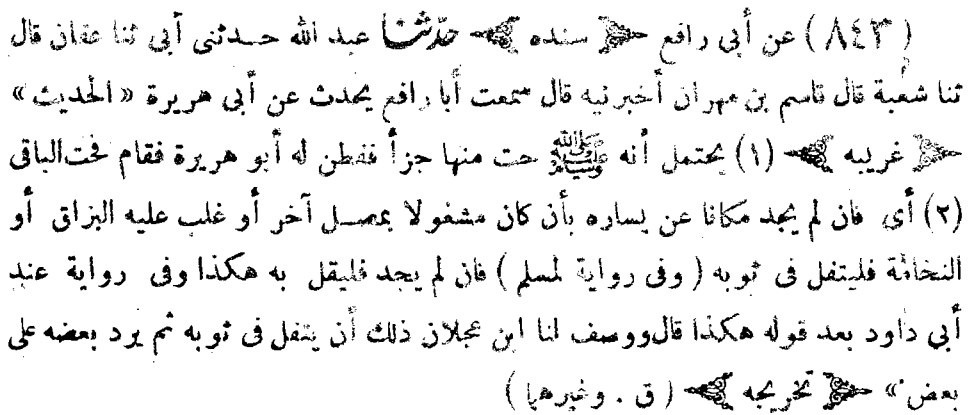 (٨٤٣) عن أبى رافع ﴿ سنده ﴾ حدّثنا عبد الله حدثنى أبى ثنا عفان قال
ثنا شعبة قال قاسم بن مهران أخبرنيه قال سمعت أبا رافع يحدث عن أبى هريرة « الحديث »
﴿ غريبه ﴾ (١) يحتمل أنه ﷺ حت منها جزأ ففطن له أبو هريرة فقام فحت الباقى
(٢) أى فان لم يجد مكانا عن يساره بأن كان مشغولا بمصل آخر أو غلب عليه البزاق أو
النخامة فليتفل فى ثوبه ( وفى رواية لمسلم ) فان لم يجد فليقل به هكذا وفى رواية عند
أبى داود بعد قوله هكذا قال ووصف لنا ابن عجلان ذلك أن يتفل فى ثوبه ثم يرد بعضه على
بعض » ﴿ تخريجه ﴾ ( ق . وغيرهما )